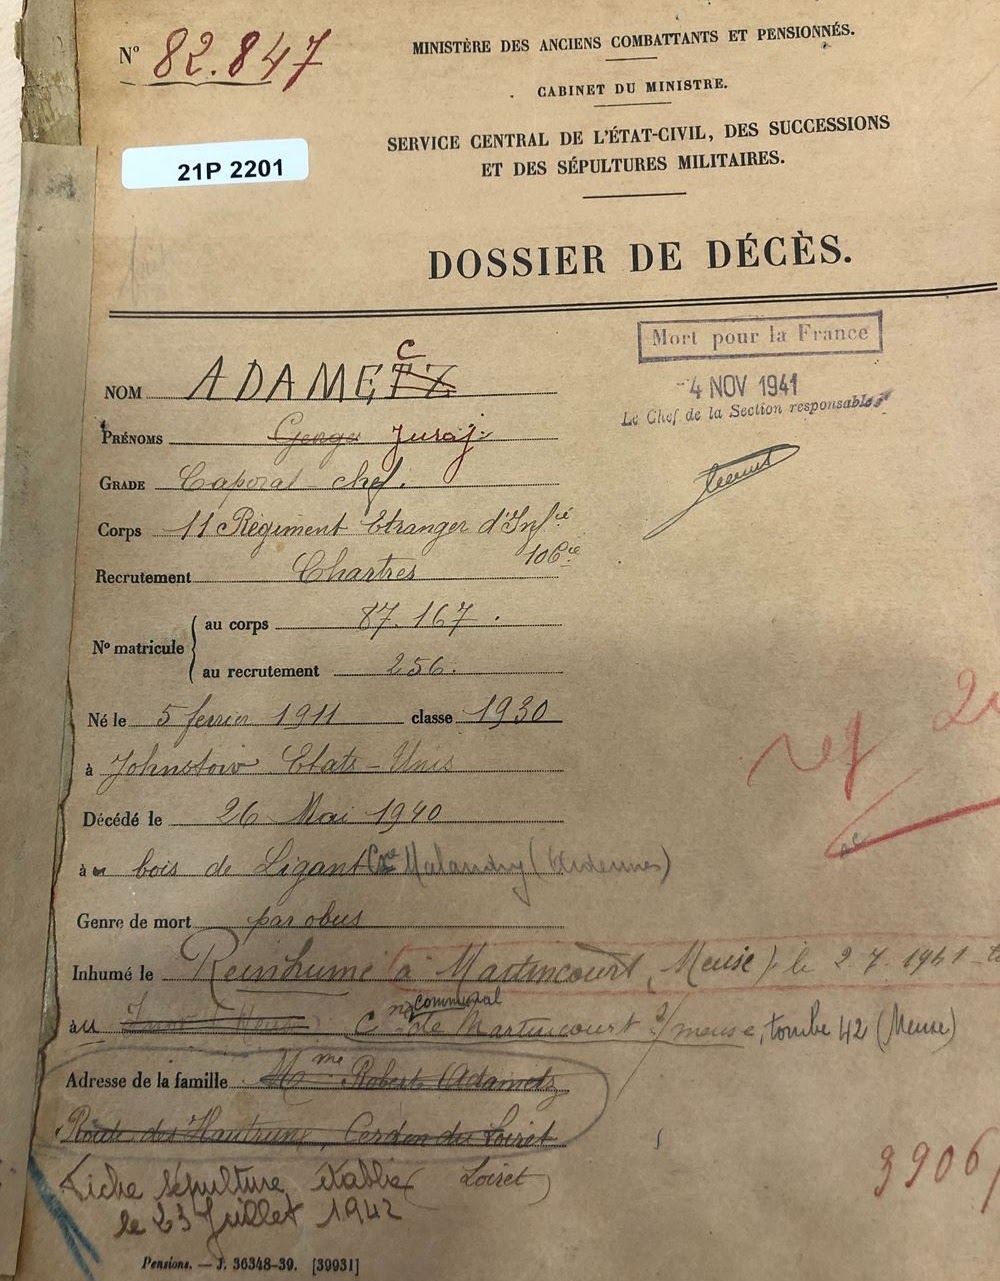 N° 82.847
MINISTÈRE DES ANCIENS COMBATTANTS ET PENSIONNÉS.
CABINET DU MINISTRE.
SERVICE CENTRAL DE L'ÉTAT-CIVIL, DES SUCCESSIONS
ET DES SÉPULTURES MILITAIRES.
21P 2201
DOSSIER DE DÉCÈS.
Mort pour la France
-4 NOV 1941
Le Chef de la Section responsable
C
NOM ADAMETZ
PRÉNOMS Georges Juraj
GRADE Caporal chef.
Corps 11 Régiment Etranger d'Inf^ie
10 C^ie
Recrutement Chartres
N° matricule
au corps 87.167.
au recrutement 256.
Né le 5 fevrier 1911 classe 1930
à Johnstow Etats-Unis
Décédé le 26 Mai 1940
à bois de Ligant C^ne Malandry (Ardennes)
Genre de mort par obus
Inhumé le Reinhumé à Martincourt, Meuse) le 2 7. 1941
communal
au C^re de Martincourt s/meuse, tombe 42 (Meuse)
Adresse de la famille M^me Robert Adametz
Route des, Cerdon du Loiret
Fiche sépulture établie (Loiret)
le 23 Juillet 1942
reg
3906
Pensions. — J. 36348-39. [39931]